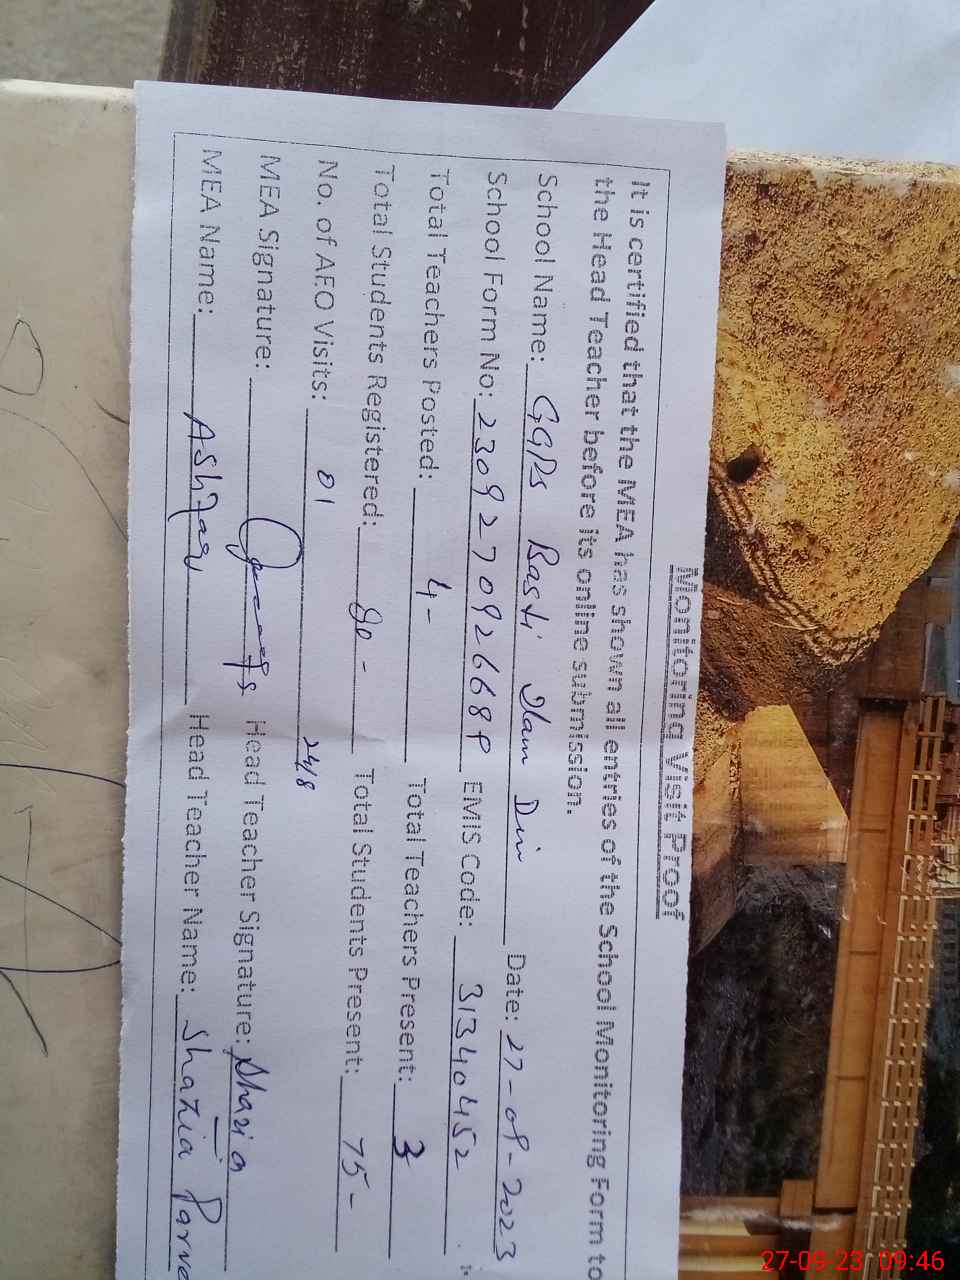 Monitoring Visit Proof
It is certified that the MEA has shown all entries of the School Monitoring Form to
the Head Teacher before its online submission.
School Name: GGPS Basti Ilam Din Date: 27-09-2023
School Form No: 2309270926689 EMIS Code: 31340452
Total Teachers Posted: 4- Total Teachers Present: 3
Total Students Registered: 80- Total Students Present: 75-
No. of AEO Visits: 01 24/8
MEA Signature: Head Teacher Signature: Shazia
MEA Name: Ashfaq Head Teacher Name: Shazia Parve
27-09-23 09:46